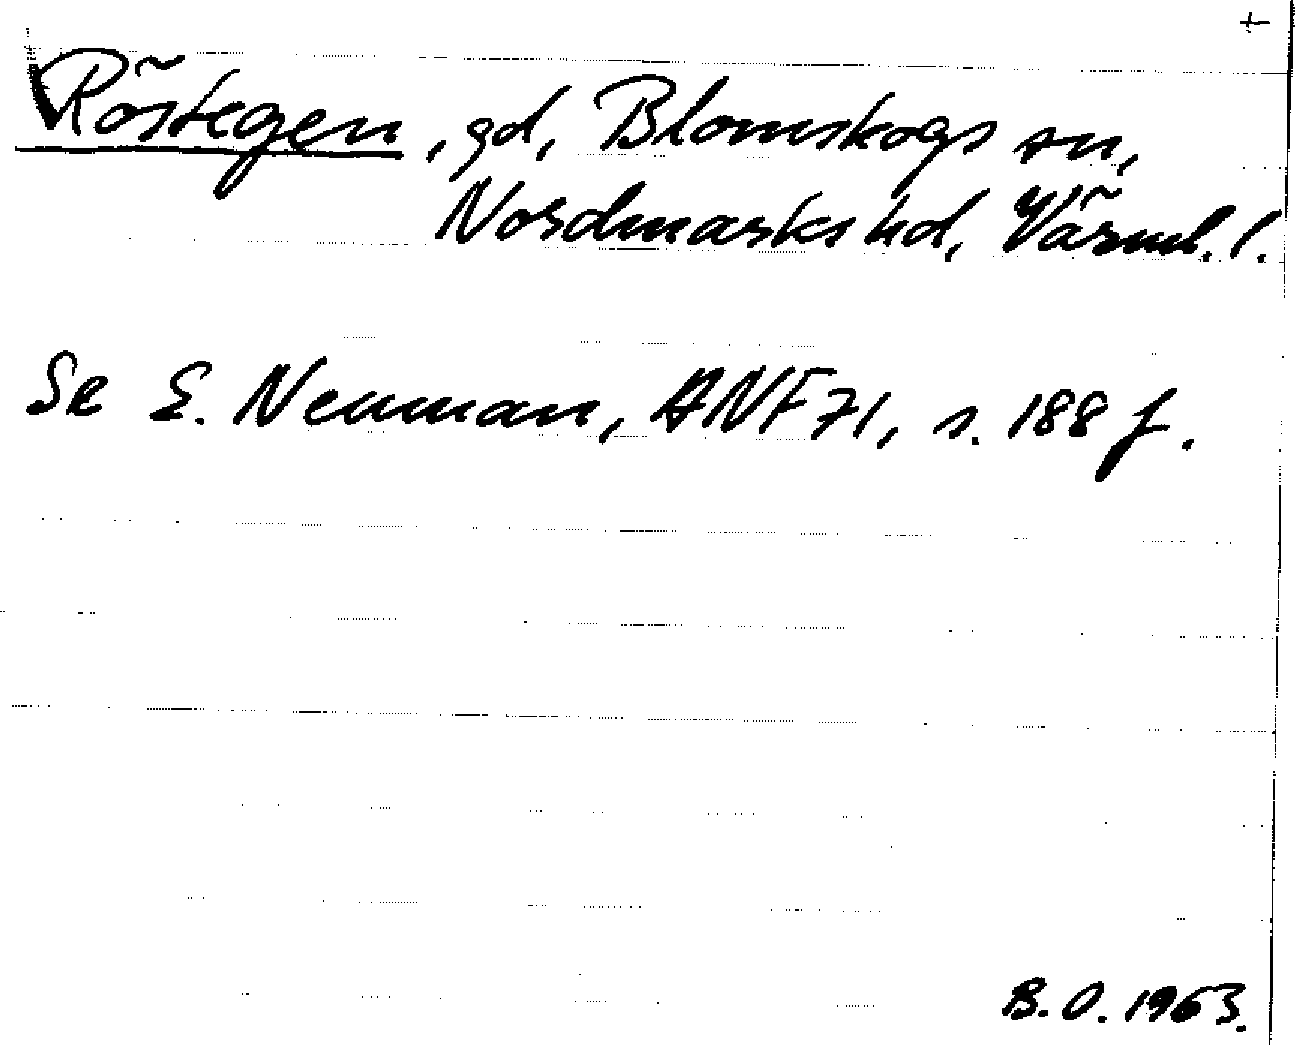 +
Röstegen, gd, Blomskogs sn,
Nordmarks hd, Värml. l.
Se E. Neuman, ANF 71, s. 188 f.
B.O. 1963.